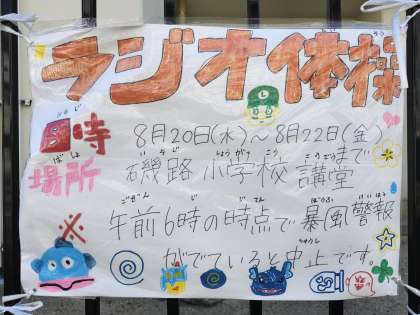 ラジオ体操
日時 8月20日(水)～8月22日(金)まで
場所 磯路小学校 講堂
※ 午前6時の時点で暴風警報
がでていると中止です。